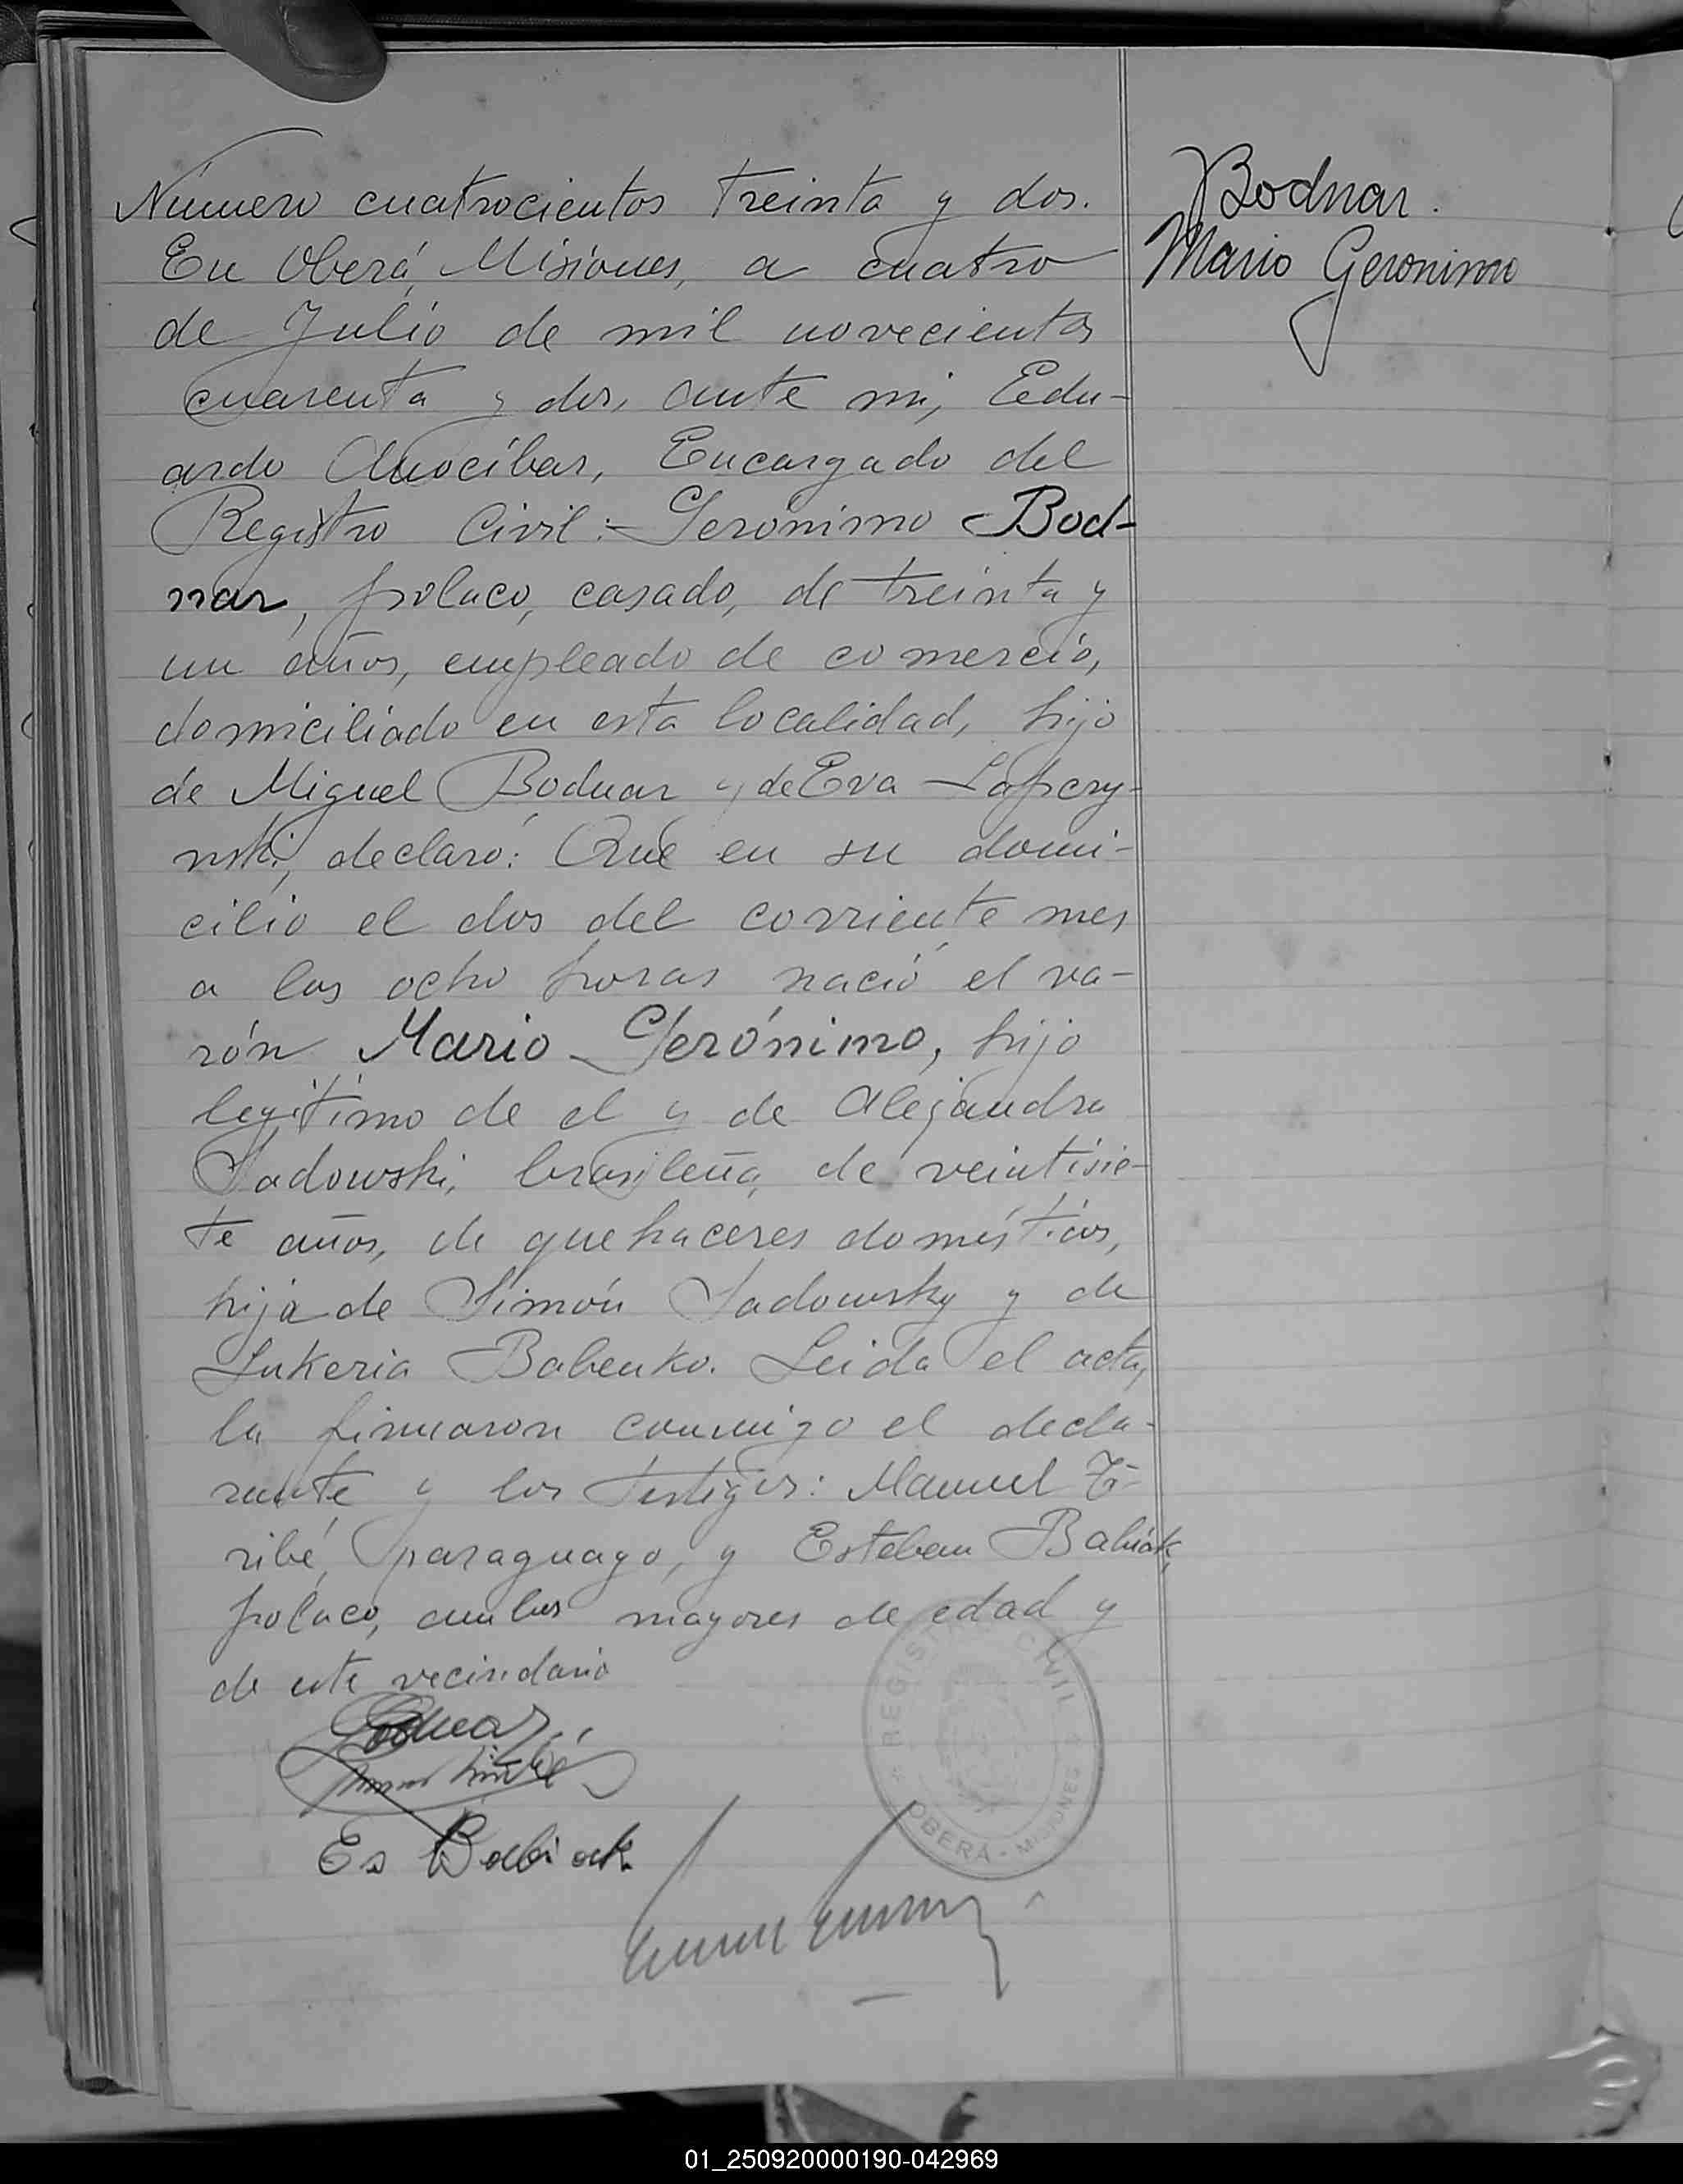 Número cuatrocientos treinta y dos.
Bodnar.
En Oberá, Misiones, a cuatro
Mario Geronimo
de Julio de mil novecientos
cuarenta y dos, ante mi, Edu-
ardo Anocíbar, Encargado del
Registro Civil:- Gerónimo Bod-
nar, polaco, casado, de treinta y
un años, empleado de comercio,
domiciliado en esta localidad, hijo
de Miguel Bodnar y de Eva Lapczy-
nski, declaró: Que en su domi-
cilio el dos del corriente mes
a las ocho horas nació el va-
rón Mario Gerónimo, hijo
legítimo de el y de Alejandra
Sadowski, brasileña, de veintisie-
te años, de quehaceres domésticos,
hija de Simón Sadowsky y de
Lukeria Babenko. Leida el acta,
la firmaron conmigo el decla-
rante y los testigos: Manuel
paraguayo, y Esteban Babiák,
polaco, ambos mayores de edad y
de este vecindario
Bodnar
Es Babiak
REGISTRO CIVIL
OBERÁ - MISIONES
01_250920000190-042969